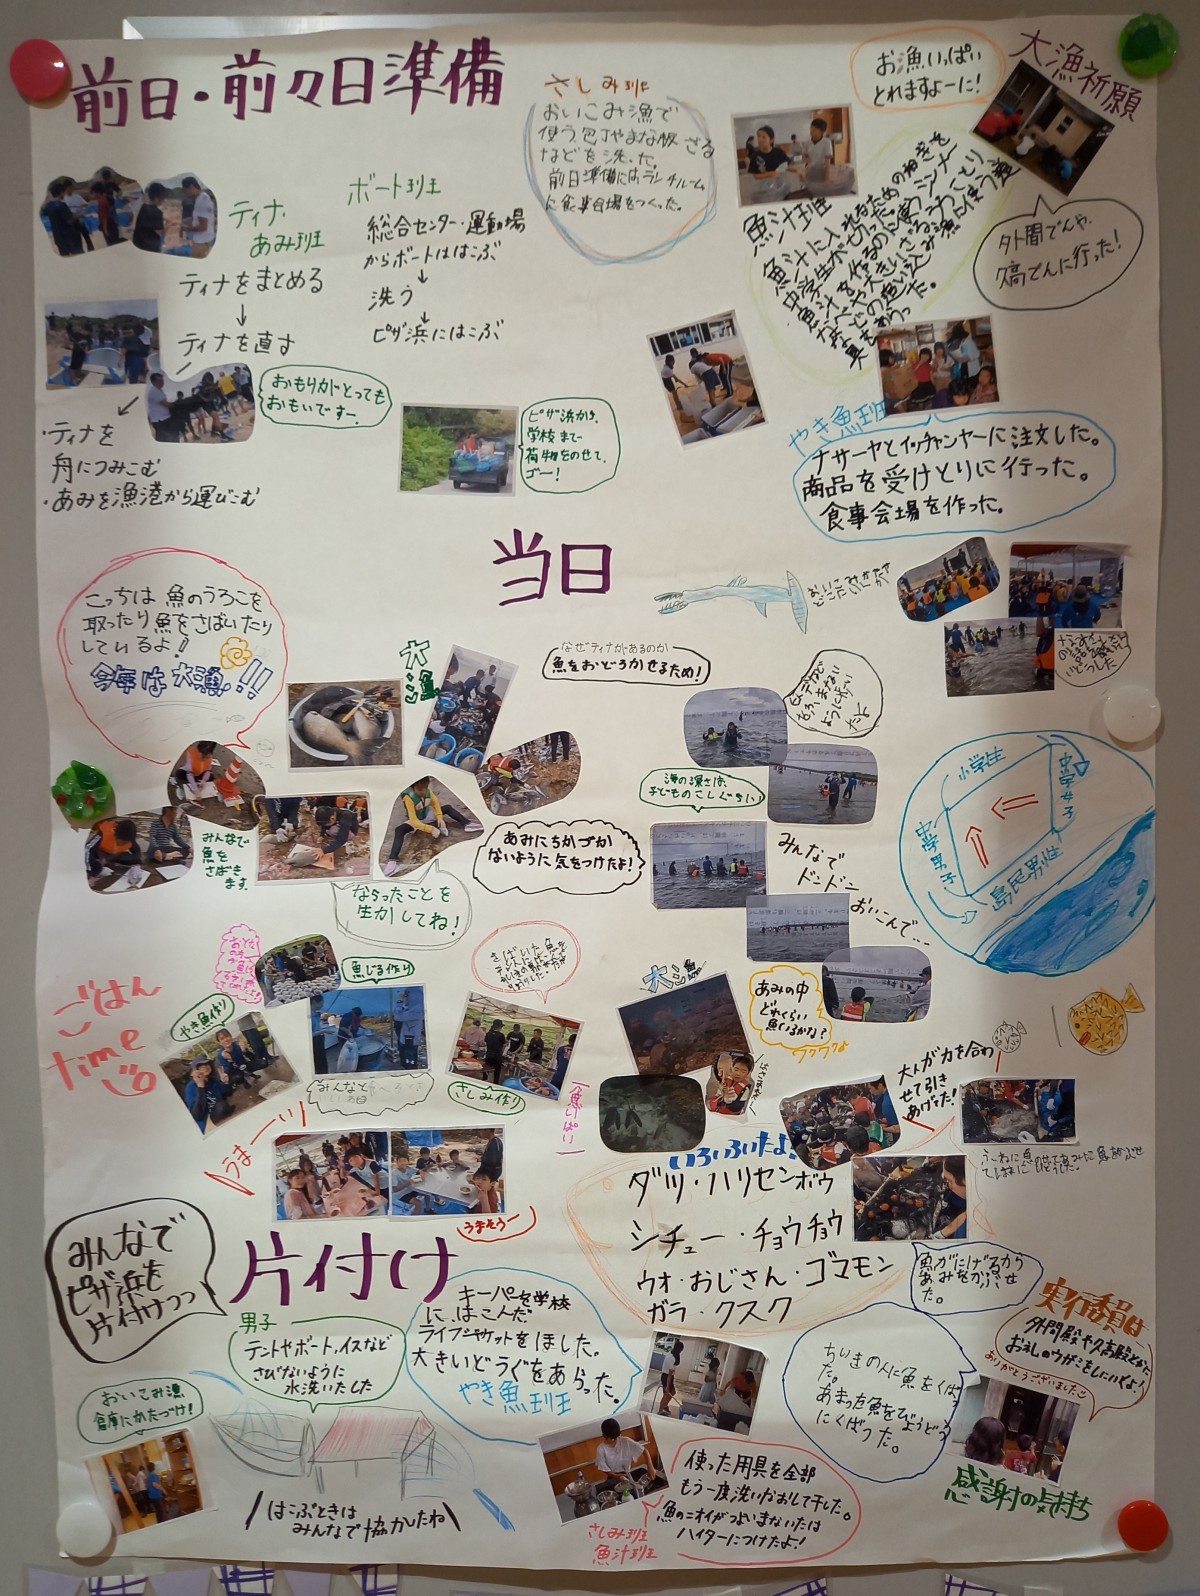 前日・前々日準備
ティナ・
あみ班
ティナをまとめる
↓
ティナを直す
・ティナを
舟につみこむ
・あみを漁港から運びこむ
おもりがとっても
おもいですー
ボート班
総合センター・運動場
からボートははこぶ
↓
洗う
↓
ピザ浜にはこぶ
ピザ浜から、
学校まで
荷物をのせて、
ゴー!
さしみ班
おいこみ漁で
使う包丁やまな板 ざる
などを洗った。
前日準備にはランチルーム
に食事会場をつくった。
お魚いっぱい
とれますよーに!
大漁祈願
外間でんや、
久高でんに行った!
魚汁班
魚汁に入れるためのねぎを
中学生がもらった。
魚汁を作るのに使うシンメー
なべや大きいざる、
などの追い込み漁に使う道
具をあらった。
やき魚班
ナサーヤとイッチャンヤーに注文した。
商品を受けとりに行った。
食事会場を作った。
当日
こっちは 魚のうろこを
取ったり魚をさばいたり
しているよ!
今年は大漁!!!
大漁
なぜティナがあるのか
魚をおどろかせるため!
海の深さは、
子どものこしぐらい!
みんなで
魚を
さばき
ます。
ならったことを
生かしてね!
あみにちかづか
ないように気をつけたよ!
みんなで
ドンドン
おいこんで…
小学生
中学女子
中学男子
島民男性
ごはん
time
やき魚作り
魚じる作り
さしみ作り
魚いっぱい
うまーい
うまそうー
大漁
あみの中
どれくらい
魚いるかな?
ワクワク
大人が力を合わ
せて引き
あげてた!
いろいろいたよ!
ダツ・ハリセンボウ
シチュー・チョウチョウ
ウオ・おじさん・ゴマモン
ガラ・クスク
魚がにげるから
あみをかぶせ
た。
片付け
みんなで
ピザ浜を
片付けっっ
男子
テントやボート、イスなど
さびないように
水洗いたした
おいこみ漁
倉庫にかたづけ!
はこぶときは
みんなで協力したね
キーパーを学校
に、はこんだ
ライフジャケットをほました。
大きいどうぐをあらった。
やき魚班
使った用具を全部
もう一度洗いなおして干した。
魚のニオイがつよいまないたは
ハイターにつけたよ!
さしみ班
魚汁班
ちいきの人に魚をくばっ
た。
あまった魚をびょうどう
にくばった。
実行委員は
外間殿や久高殿とかに
お礼のウガミをしにいくよ!
ありがとうございました
感謝の気持ち